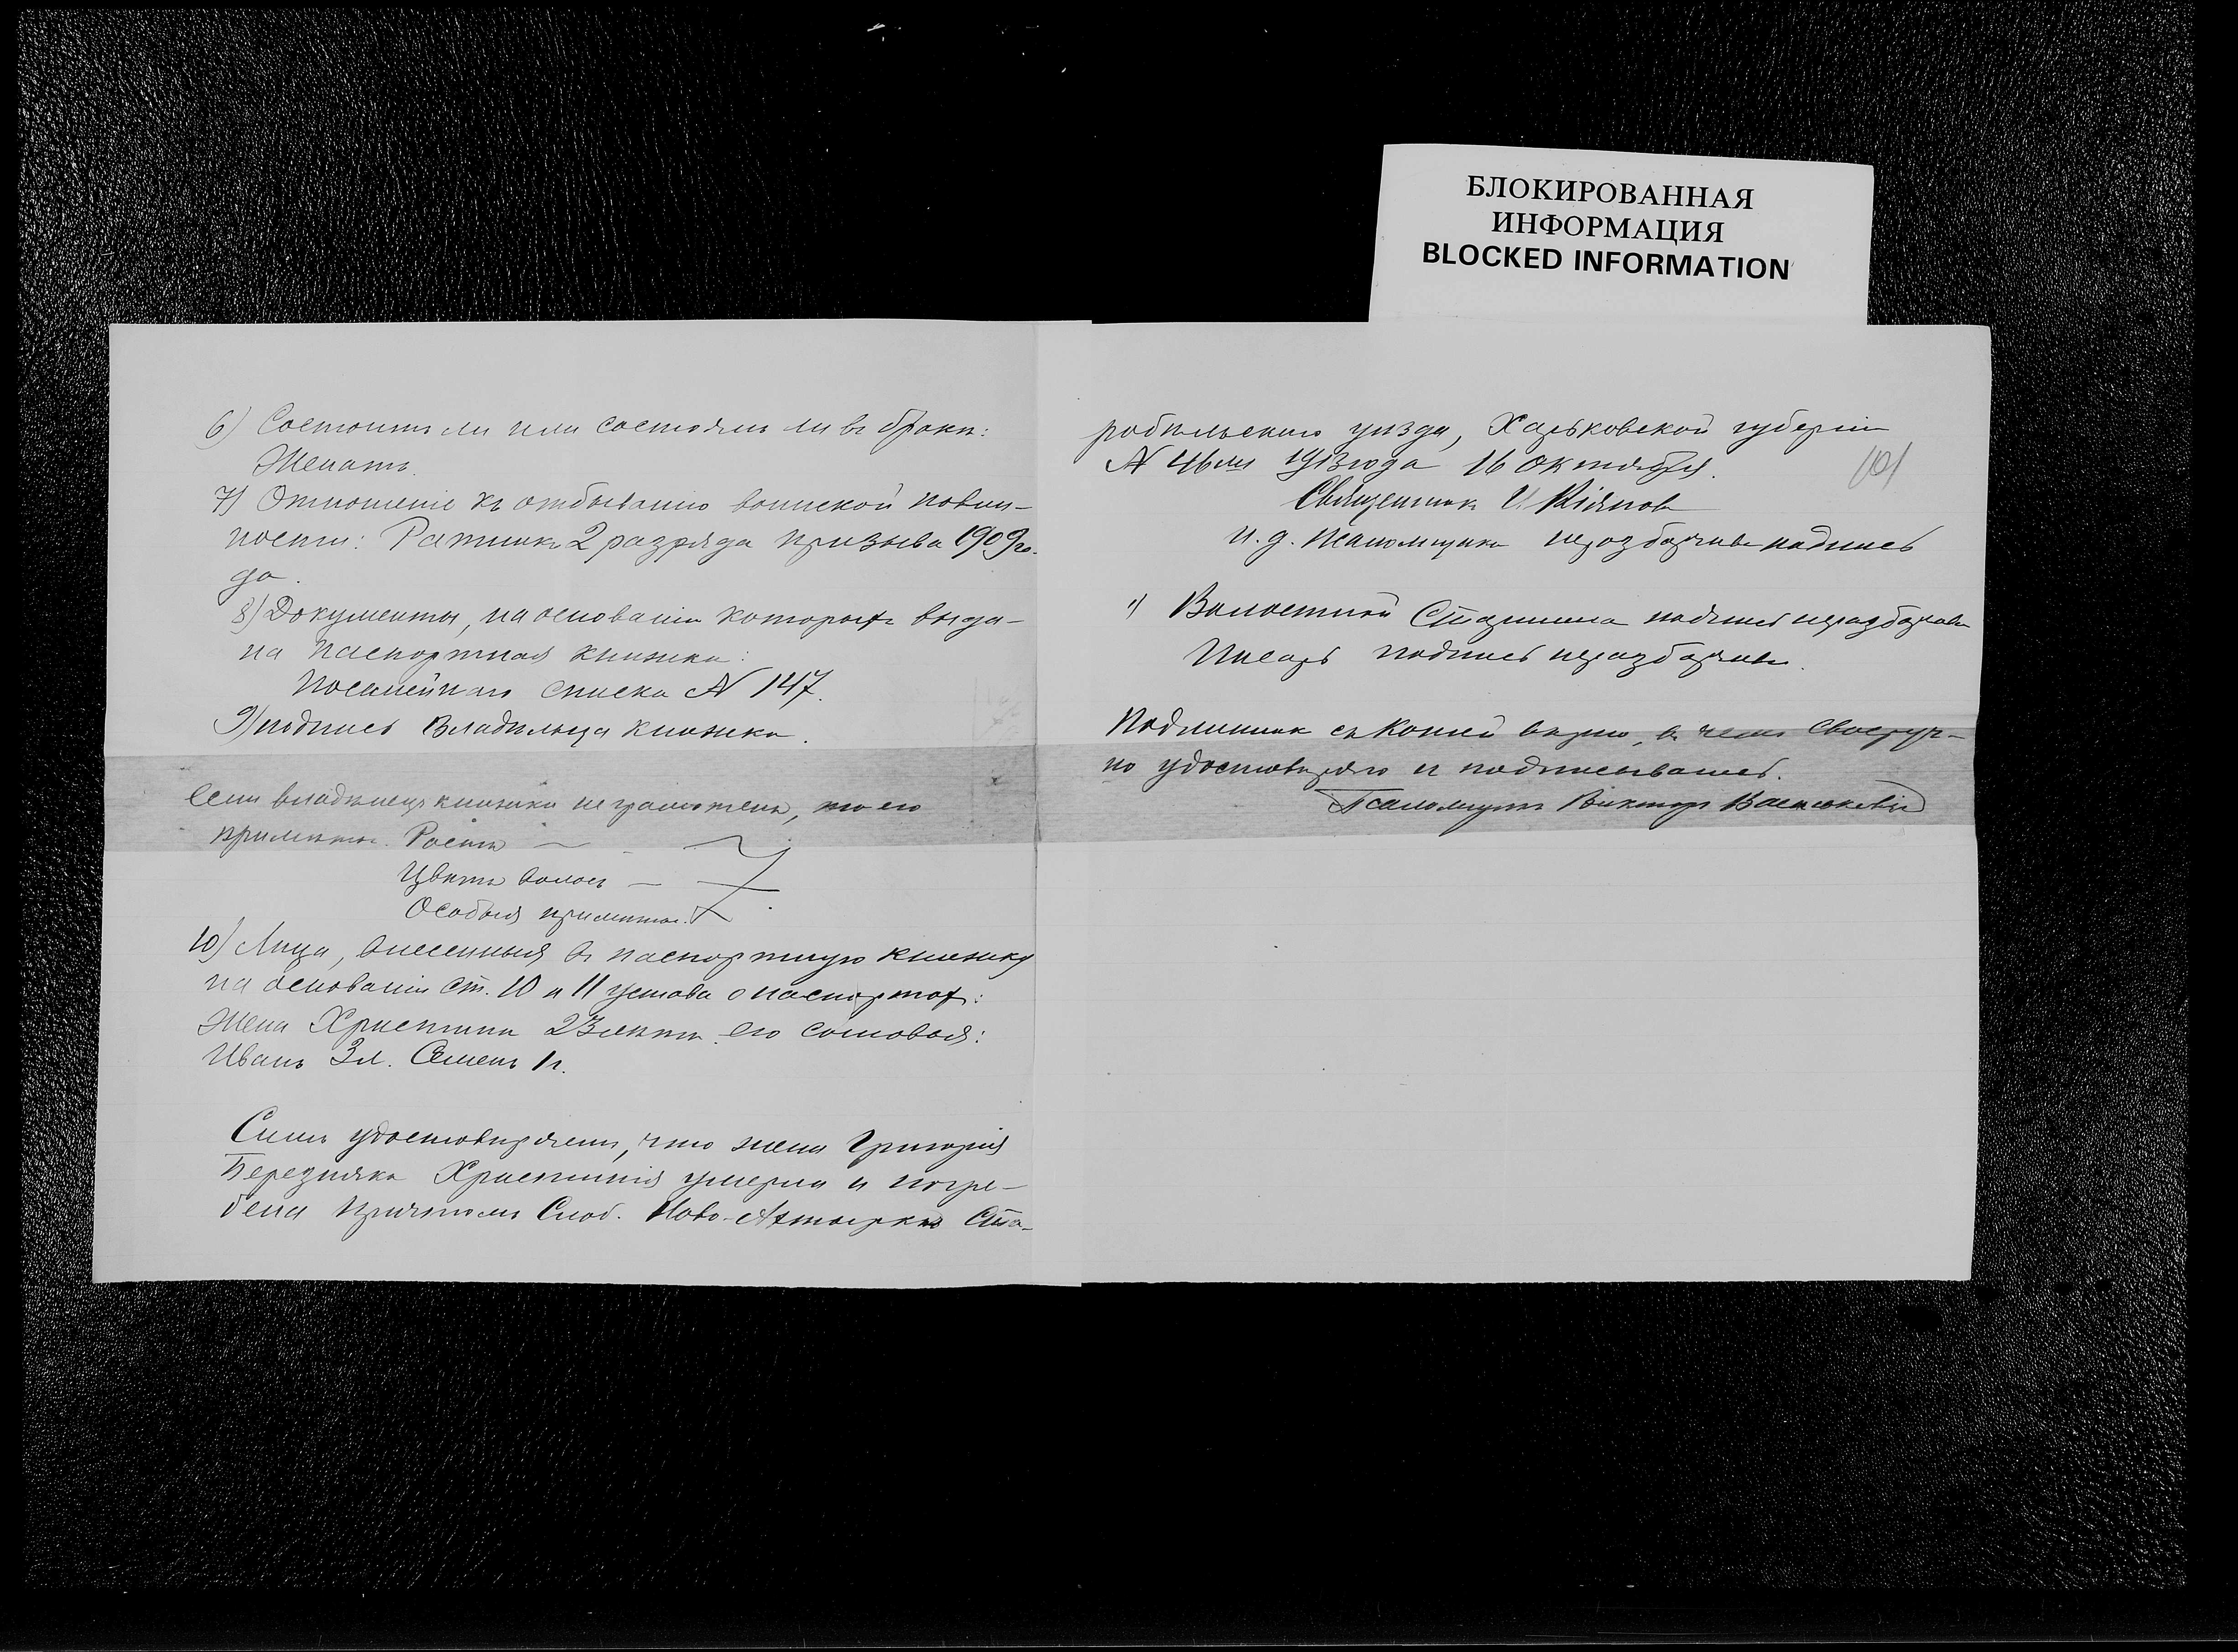 БЛОКИРОВАННАЯ
ИНФОРМАЦИЯ
BLOCKED INFORMATION
6) Состоитъ ли или состоялъ ли въ бракѣ:
Женатъ.
7) Отношеніе къ отбыванію воинской повин-
ности: Ратникъ 2 разряда призыва 1909 го-
да.
8) Документы, на основаніи которыхъ выда-
на паспортная книжка:
Посемейнаго списка № 147.
9) подпись Владѣльца книжки.
если владѣлецъ книжки неграмотенъ, то его
примѣты. Ростъ —
Цвѣтъ волосъ —
Особыя примѣты.
10) Лица, внесенныя въ паспортную книжку
на основаніи ст. 10 и 11 устава о паспортах:
Жена Христина 23 лѣтъ его сыновья:
Иванъ 3 л. Семенъ 1 г.
Симъ удостовѣряемъ, что жена Григорія
Березняка Христинія умерла и погре-
бена причтомъ Слоб. Ново-Ахтырки Ста-
робѣльскаго уѣзда, Харьковской губерніи
№ 46 1913 года 16 Октября.
101
Священникъ
и. д. Псаломщика неразборчива подпись
Волостной Старшина подпись неразборчива
Писарь подпись неразборчива.
Подлинник съ копіей вѣрно, въ чемъ своеруч-
но удостовѣряю и подписываюсь.
Псаломщикъ Викторъ